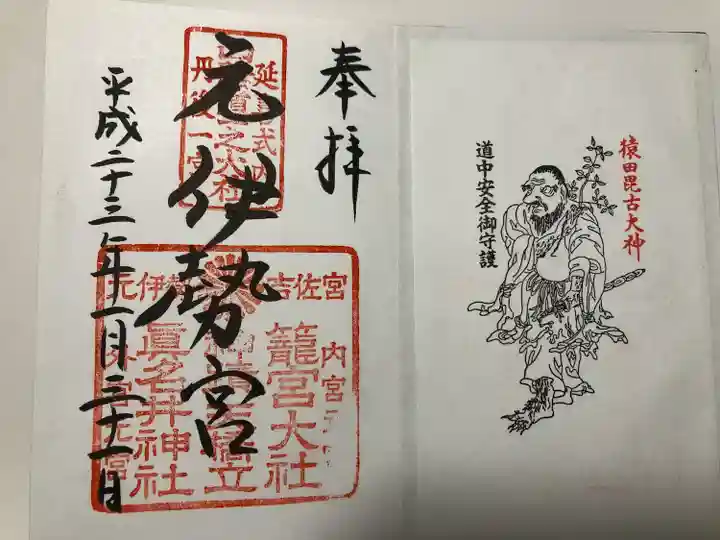 猿田毘古大神
道中安全御守護
奉拝
元伊勢宮
平成二十三年十一月 日
延 式内
之大社
丹後一宮
吉佐宮
内宮
籠宮大社
橋立
眞名井神社